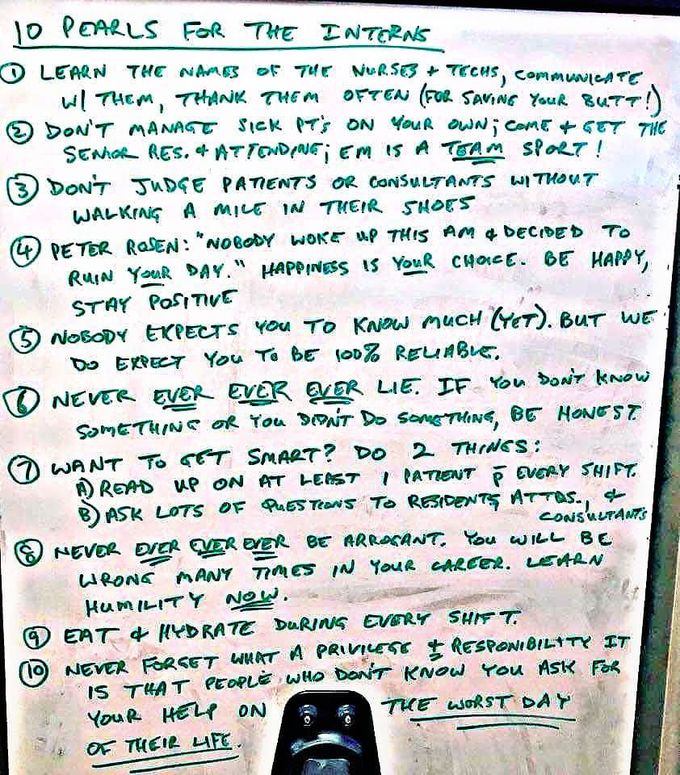 10 PEARLS FOR THE INTERNS
① LEARN THE NAMES OF THE NURSES + TECHS, COMMUNICATE
W/ THEM, THANK THEM OFTEN (FOR SAVING YOUR BUTT!)
② DON'T MANAGE SICK PT'S ON YOUR OWN; COME + GET THE
SENIOR RES. + ATTENDING; EM IS A TEAM SPORT!
③ DON'T JUDGE PATIENTS OR CONSULTANTS WITHOUT
WALKING A MILE IN THEIR SHOES
④ PETER ROSEN: "NOBODY WOKE UP THIS AM & DECIDED TO
RUIN YOUR DAY." HAPPINESS IS YOUR CHOICE. BE HAPPY,
STAY POSITIVE
⑤ NOBODY EXPECTS YOU TO KNOW MUCH (YET). BUT WE
DO EXPECT YOU TO BE 100% RELIABLE.
⑥ NEVER EVER EVER EVER LIE. IF YOU DON'T KNOW
SOMETHING OR YOU DIDN'T DO SOMETHING, BE HONEST.
⑦ WANT TO GET SMART? DO 2 THINGS:
A) READ UP ON AT LEAST 1 PATIENT p̄ EVERY SHIFT.
B) ASK LOTS OF QUESTIONS TO RESIDENTS, ATTDS., &
CONSULTANTS
⑧ NEVER EVER EVER EVER BE ARROGANT. YOU WILL BE
WRONG MANY TIMES IN YOUR CAREER. LEARN
HUMILITY NOW.
⑨ EAT & HYDRATE DURING EVERY SHIFT.
⑩ NEVER FORGET WHAT A PRIVILEGE + RESPONIBILITY IT
IS THAT PEOPLE WHO DON'T KNOW YOU ASK FOR
YOUR HELP ON THE WORST DAY
OF THEIR LIFE.